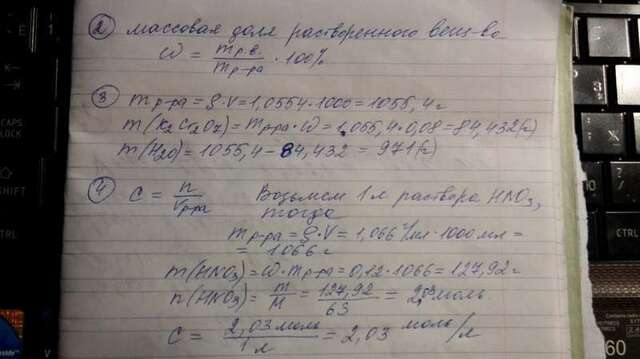 ② массовая доля растворенного вещ-ва
ω = mр.в. / mр-ра · 100%
③ mр-ра = ρ·V = 1,0554·1000 = 1055,4 г
m(K2Cr2O7) = mр-ра·ω = 1055,4·0,08 = 84,432(г)
m(H2O) = 1055,4 – 84,432 = 971(г)
④ C = n / Vр-ра Возьмем 1 л раствора HNO3,
тогда
mр-ра = ρ·V = 1,066 г/мл·1000 мл =
= 1066 г
m(HNO3) = ω·mр-ра = 0,12·1066 = 127,92 г
n(HNO3) = m / M = 127,92 / 63 = 2,03 моль
C = 2,03 моль / 1 л = 2,03 моль/л
CAPS
LOCK
SHIFT
V
60